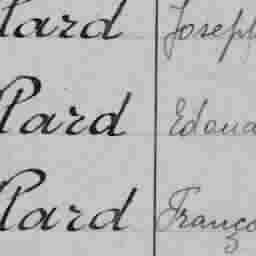 Pard Joseph
Pard Edoua
Pard Franço